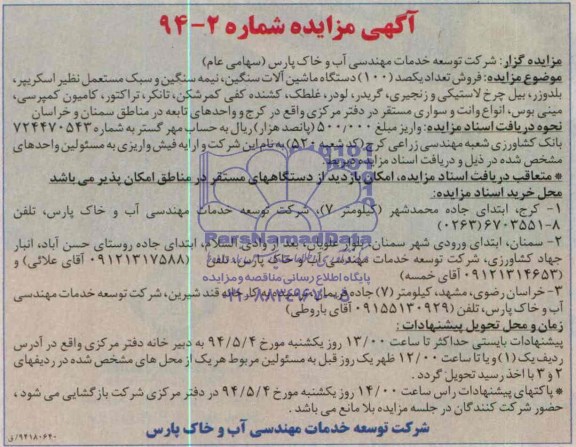 آگهی مزایده شماره ۲-۹۴
مزایده گزار: شرکت توسعه خدمات مهندسی آب و خاک پارس (سهامی عام)
موضوع مزایده: فروش تعداد یکصد (۱۰۰) دستگاه ماشین آلات سنگین، نیمه سنگین و سبک مستعمل نظیر اسکریپر،
بلدوزر، بیل چرخ لاستیکی و زنجیری، گریدر، لودر، غلطک، کشنده کفی کمرشکن، تانکر، تراکتور، کامیون کمپرسی،
مینی بوس، انواع وانت و سواری مستقر در دفتر مرکزی واقع در کرج و واحدهای تابعه در مناطق سمنان و خراسان
نحوه دریافت اسناد مزایده: واریز مبلغ ۵۰۰/۰۰۰ (پانصد هزار) ریال به حساب مهر گستر به شماره ۷۲۴۴۷۰۵۴۳
بانک کشاورزی شعبه مهندسی زراعی کرج (کد شعبه ۵۲۰) به نام این شرکت و ارایه فیش واریزی به مسئولین واحدهای
مشخص شده در ذیل و دریافت اسناد مزایده
* متعاقب دریافت اسناد مزایده، امکان بازدید از دستگاههای مستقر در مناطق امکان پذیر می باشد
محل خرید اسناد مزایده:
۱- کرج، ابتدای جاده محمدشهر (کیلومتر ۷)، شرکت توسعه خدمات مهندسی آب و خاک پارس، تلفن
۸-۶۷۰۳۵۵۱ (۰۲۶۳)
۲- سمنان، ابتدای ورودی شهر سمنان، بلوار علویان، بعد از وادی السلام، ابتدای جاده روستای حسن آباد، انبار
جهاد کشاورزی، شرکت توسعه خدمات مهندسی آب و خاک پارس، تلفن (۰۹۱۲۱۳۱۷۵۸۸ آقای علائی) و
(۰۹۱۲۱۳۱۴۶۵۳ آقای خمسه)
۳- خراسان رضوی، مشهد، کیلومتر (۷) جاده فریمان، کارخانه قند شیرین، شرکت توسعه خدمات مهندسی
آب و خاک پارس، تلفن (۰۹۱۵۵۱۳۰۹۲۹ آقای باروطی)
زمان و محل تحویل پیشنهادات:
پیشنهادات بایستی حداکثر تا ساعت ۱۳/۰۰ روز یکشنبه مورخ ۹۴/۵/۴ به دبیر خانه دفتر مرکزی واقع در آدرس
ردیف یک (۱) و یا تا ساعت ۱۲/۰۰ ظهر یک روز قبل به مسئولین مربوط هر یک از محل های مشخص شده در ردیفهای
۲ و ۳ با اخذ رسید تحویل گردد.
* پاکتهای پیشنهادات راس ساعت ۱۴/۰۰ روز یکشنبه مورخ ۹۴/۵/۴ در دفتر مرکزی شرکت بازگشایی می شود،
حضور شرکت کنندگان در جلسه مزایده بلا مانع می باشد.
شرکت توسعه خدمات مهندسی آب و خاک پارس
ParsNamadData
پایگاه اطلاع رسانی مناقصه و مزایده